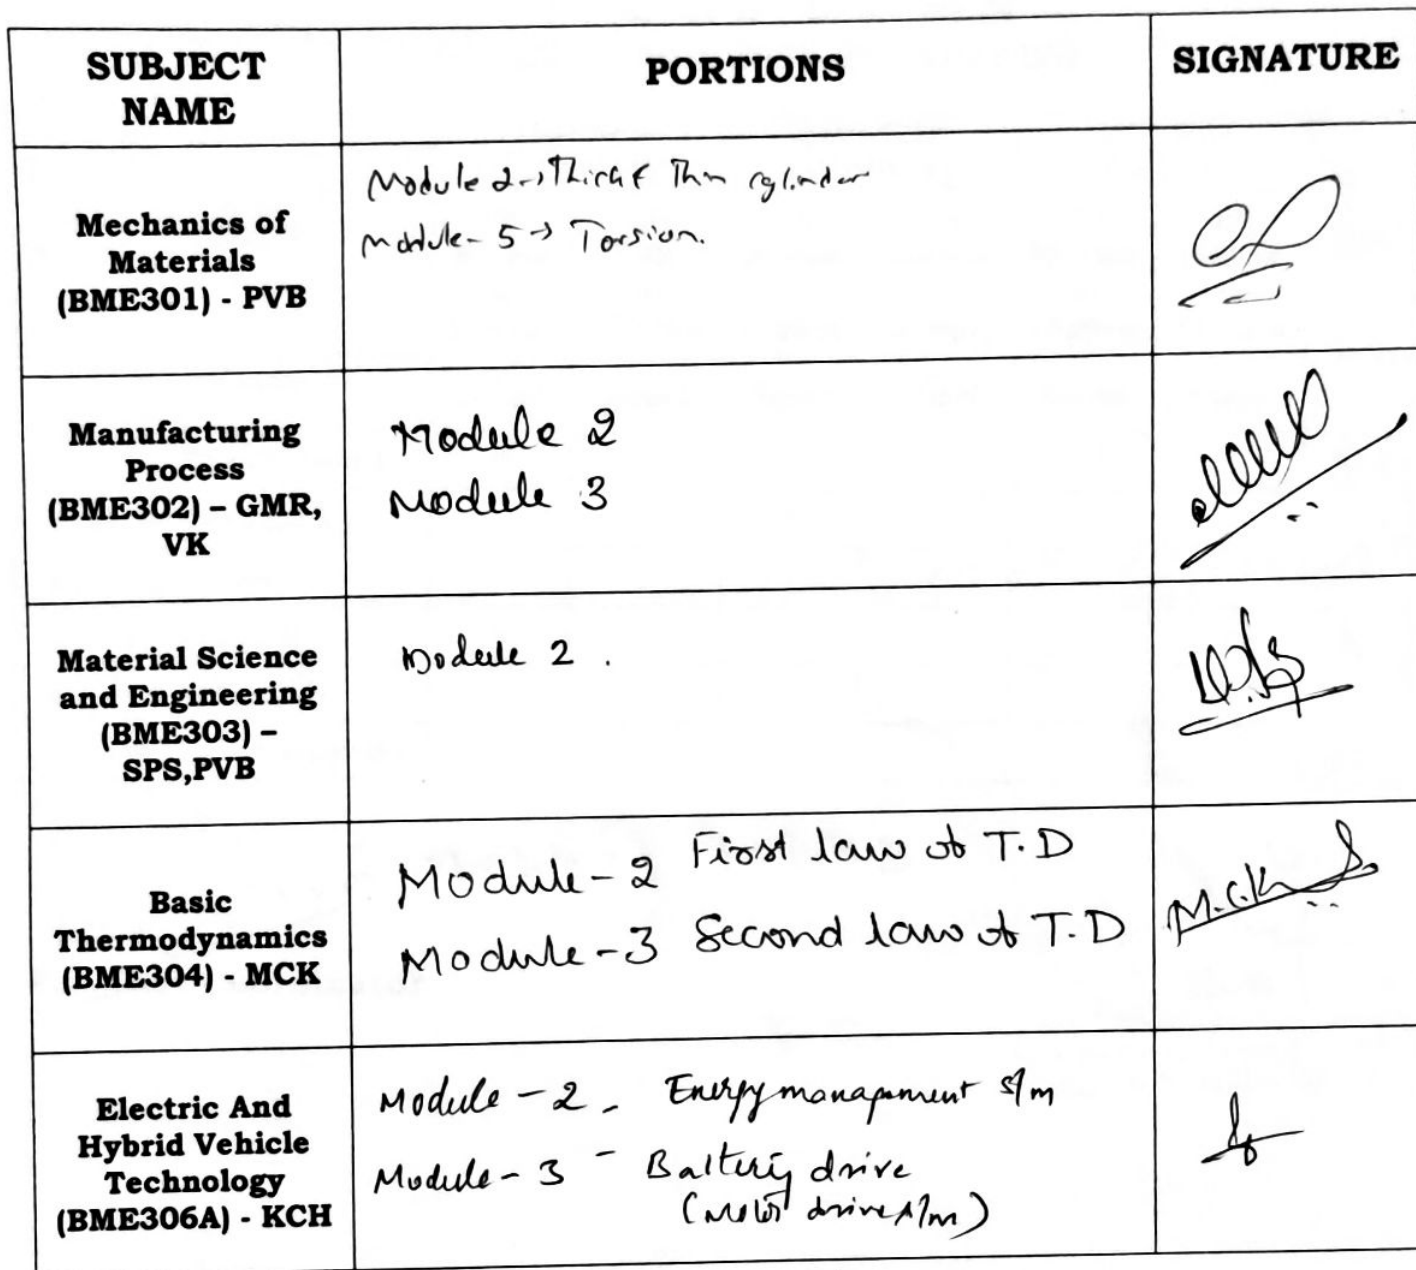 SUBJECT NAME
PORTIONS
SIGNATURE
Mechanics of
Materials
(BME301) - PVB
Module 2 -> Thick & Thin cylinder
Module - 5 -> Torsion.
Manufacturing
Process
(BME302) – GMR,
VK
Module 2
Module 3
Material Science
and Engineering
(BME303) –
SPS,PVB
Module 2 .
Basic
Thermodynamics
(BME304) - MCK
Module - 2 First law of T.D
Module - 3 Second law of T.D
M.C.K
Electric And
Hybrid Vehicle
Technology
(BME306A) - KCH
Module - 2 - Energy management s/m
Module - 3 - Battery drive
(Motor drive s/m)